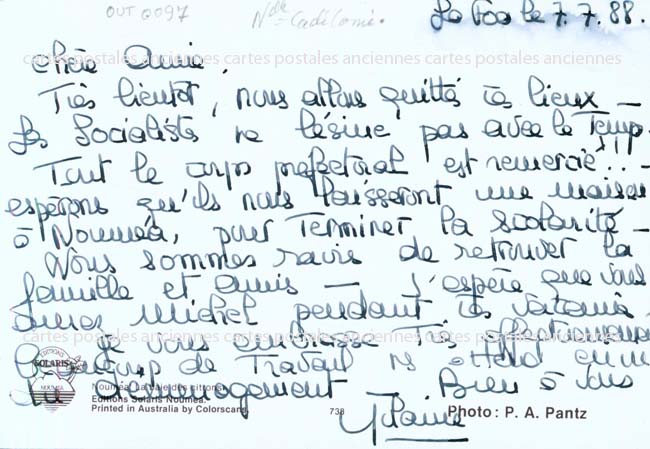 OUT 0097
Nlle Calédonie.
La Foa le 7.7.88.
Chère Amie,
Très bientôt, nous allons quitté ces lieux —
Les Socialistes ne lésine pas avec le Temps
Tout le corps préfectoral est remercié..—
espérons qu'ils nous laisseront une maison
à Nouméa, pour Terminer la scolarité —
Nous sommes ravis de retrouver la
famille et amis — J'espère que vous
Michel pendant ces vacances
cartes postales anciennes cartes postales anciennes cartes postales anciennes
Je vous
Beaucoup de Travail
déménagement Bien à vous
EDITIONS
SOLARIS
NOUMEA
Nouméa, la baie des citrons.
Editions Solaris Nouméa.
Printed in Australia by Colorscans.
738
Photo: P. A. Pantz